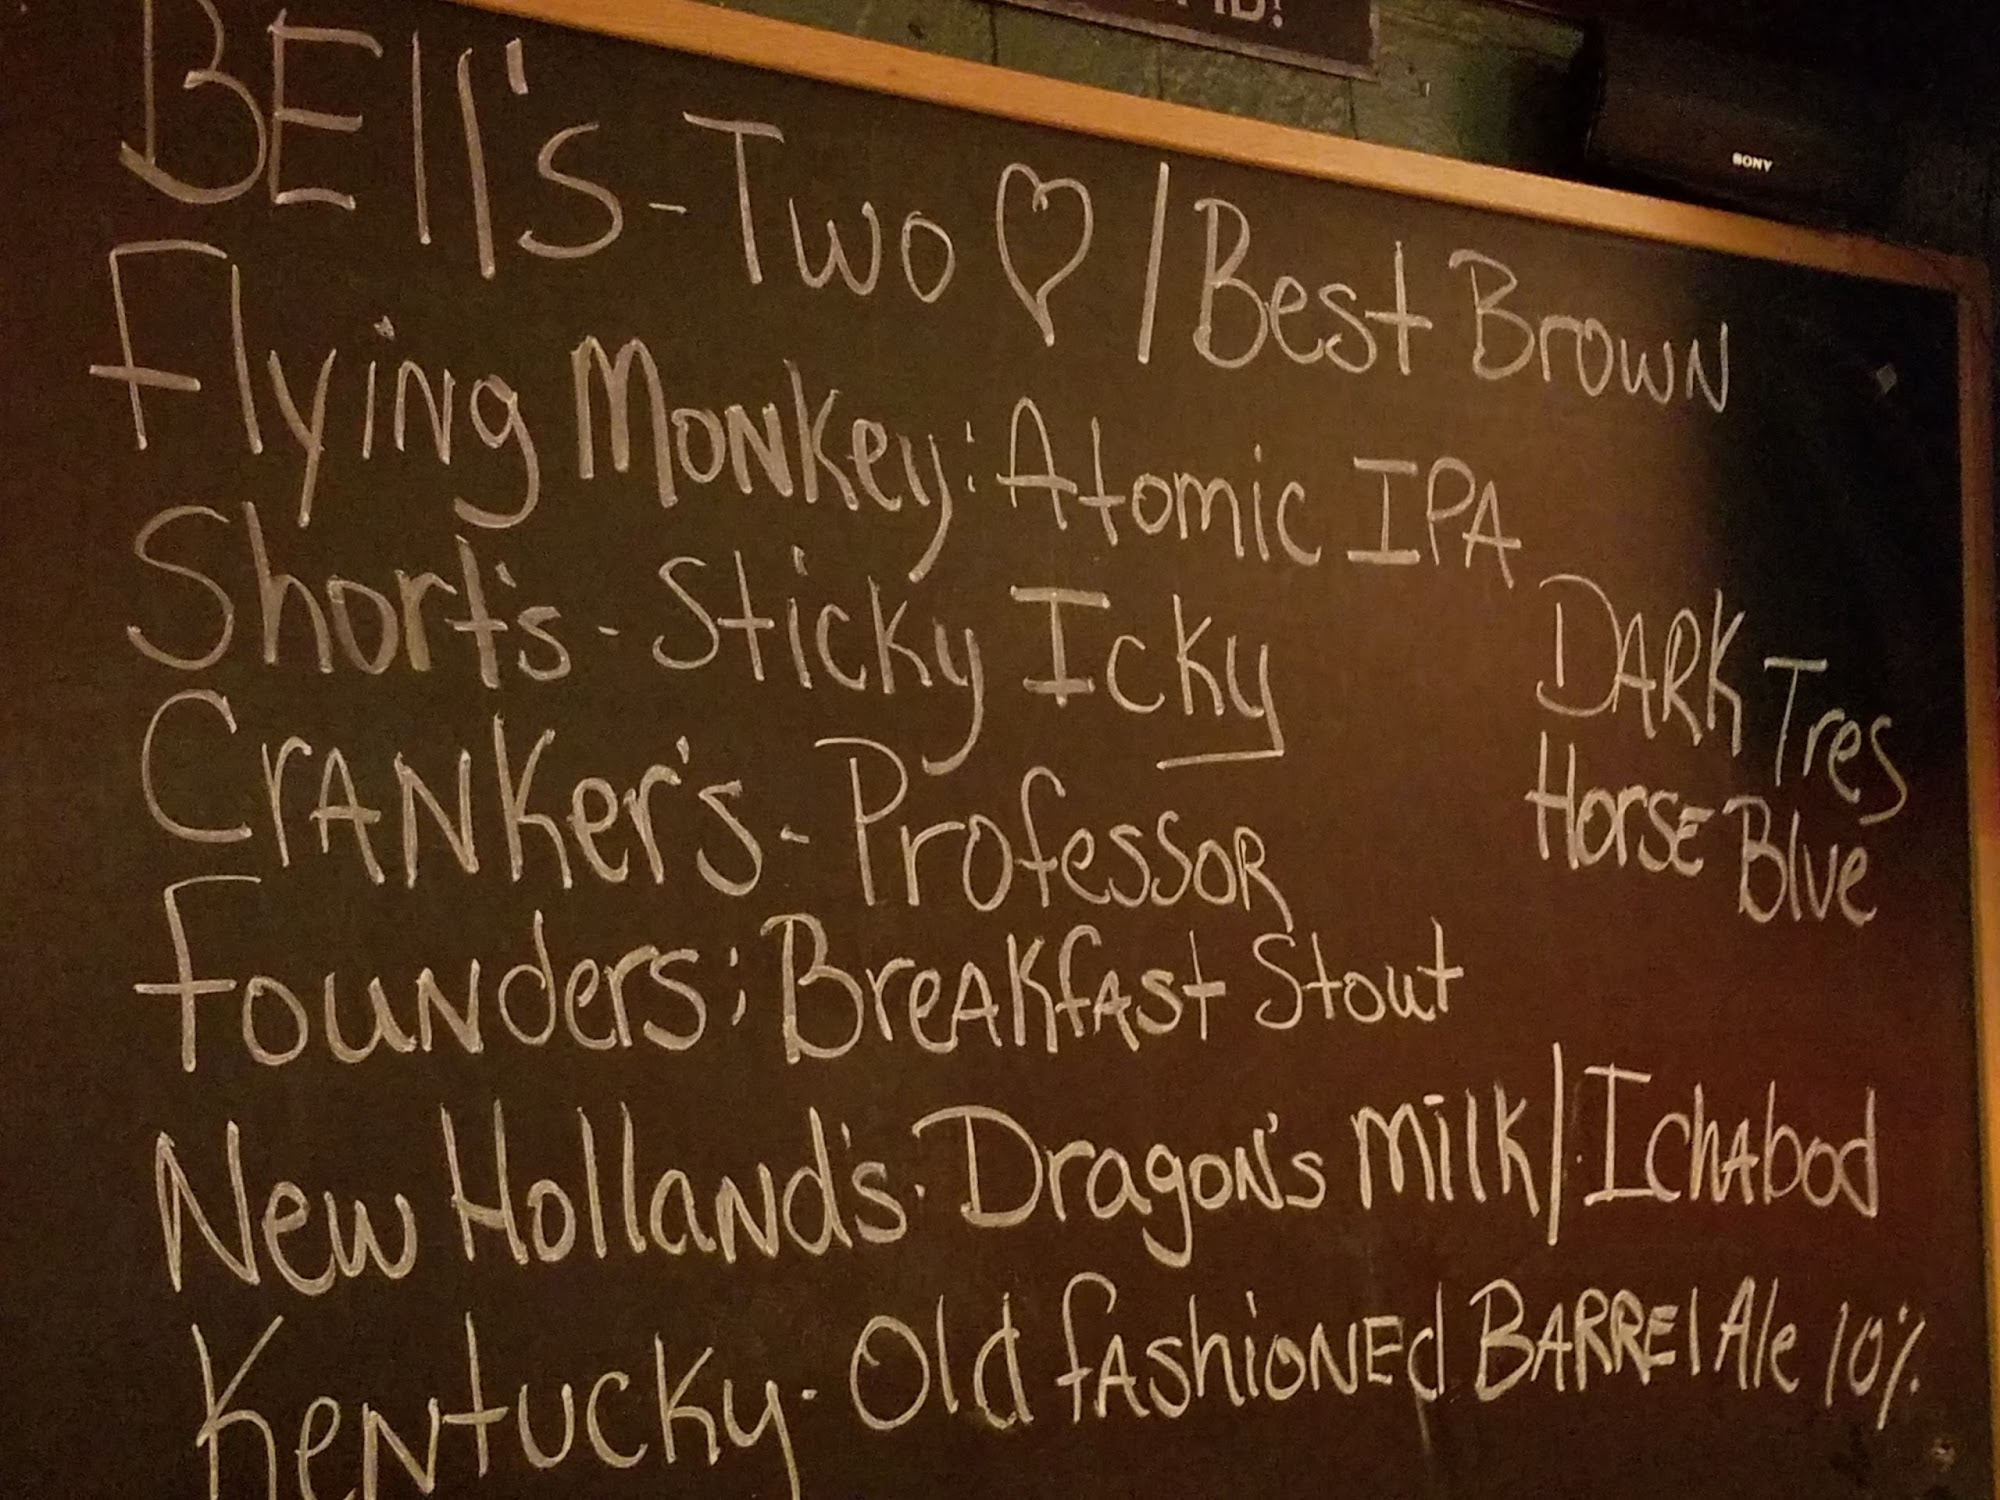 SONY
BEll's - Two ♡ / Best Brown
Flying Monkey: Atomic IPA
Short's - Sticky Icky
Cranker's - Professor
DARK Tres
Horse Blue
Founders: Breakfast Stout
New Holland's - Dragon's Milk / Ichabod
Kentucky - Old fashioned Barrel Ale 10%